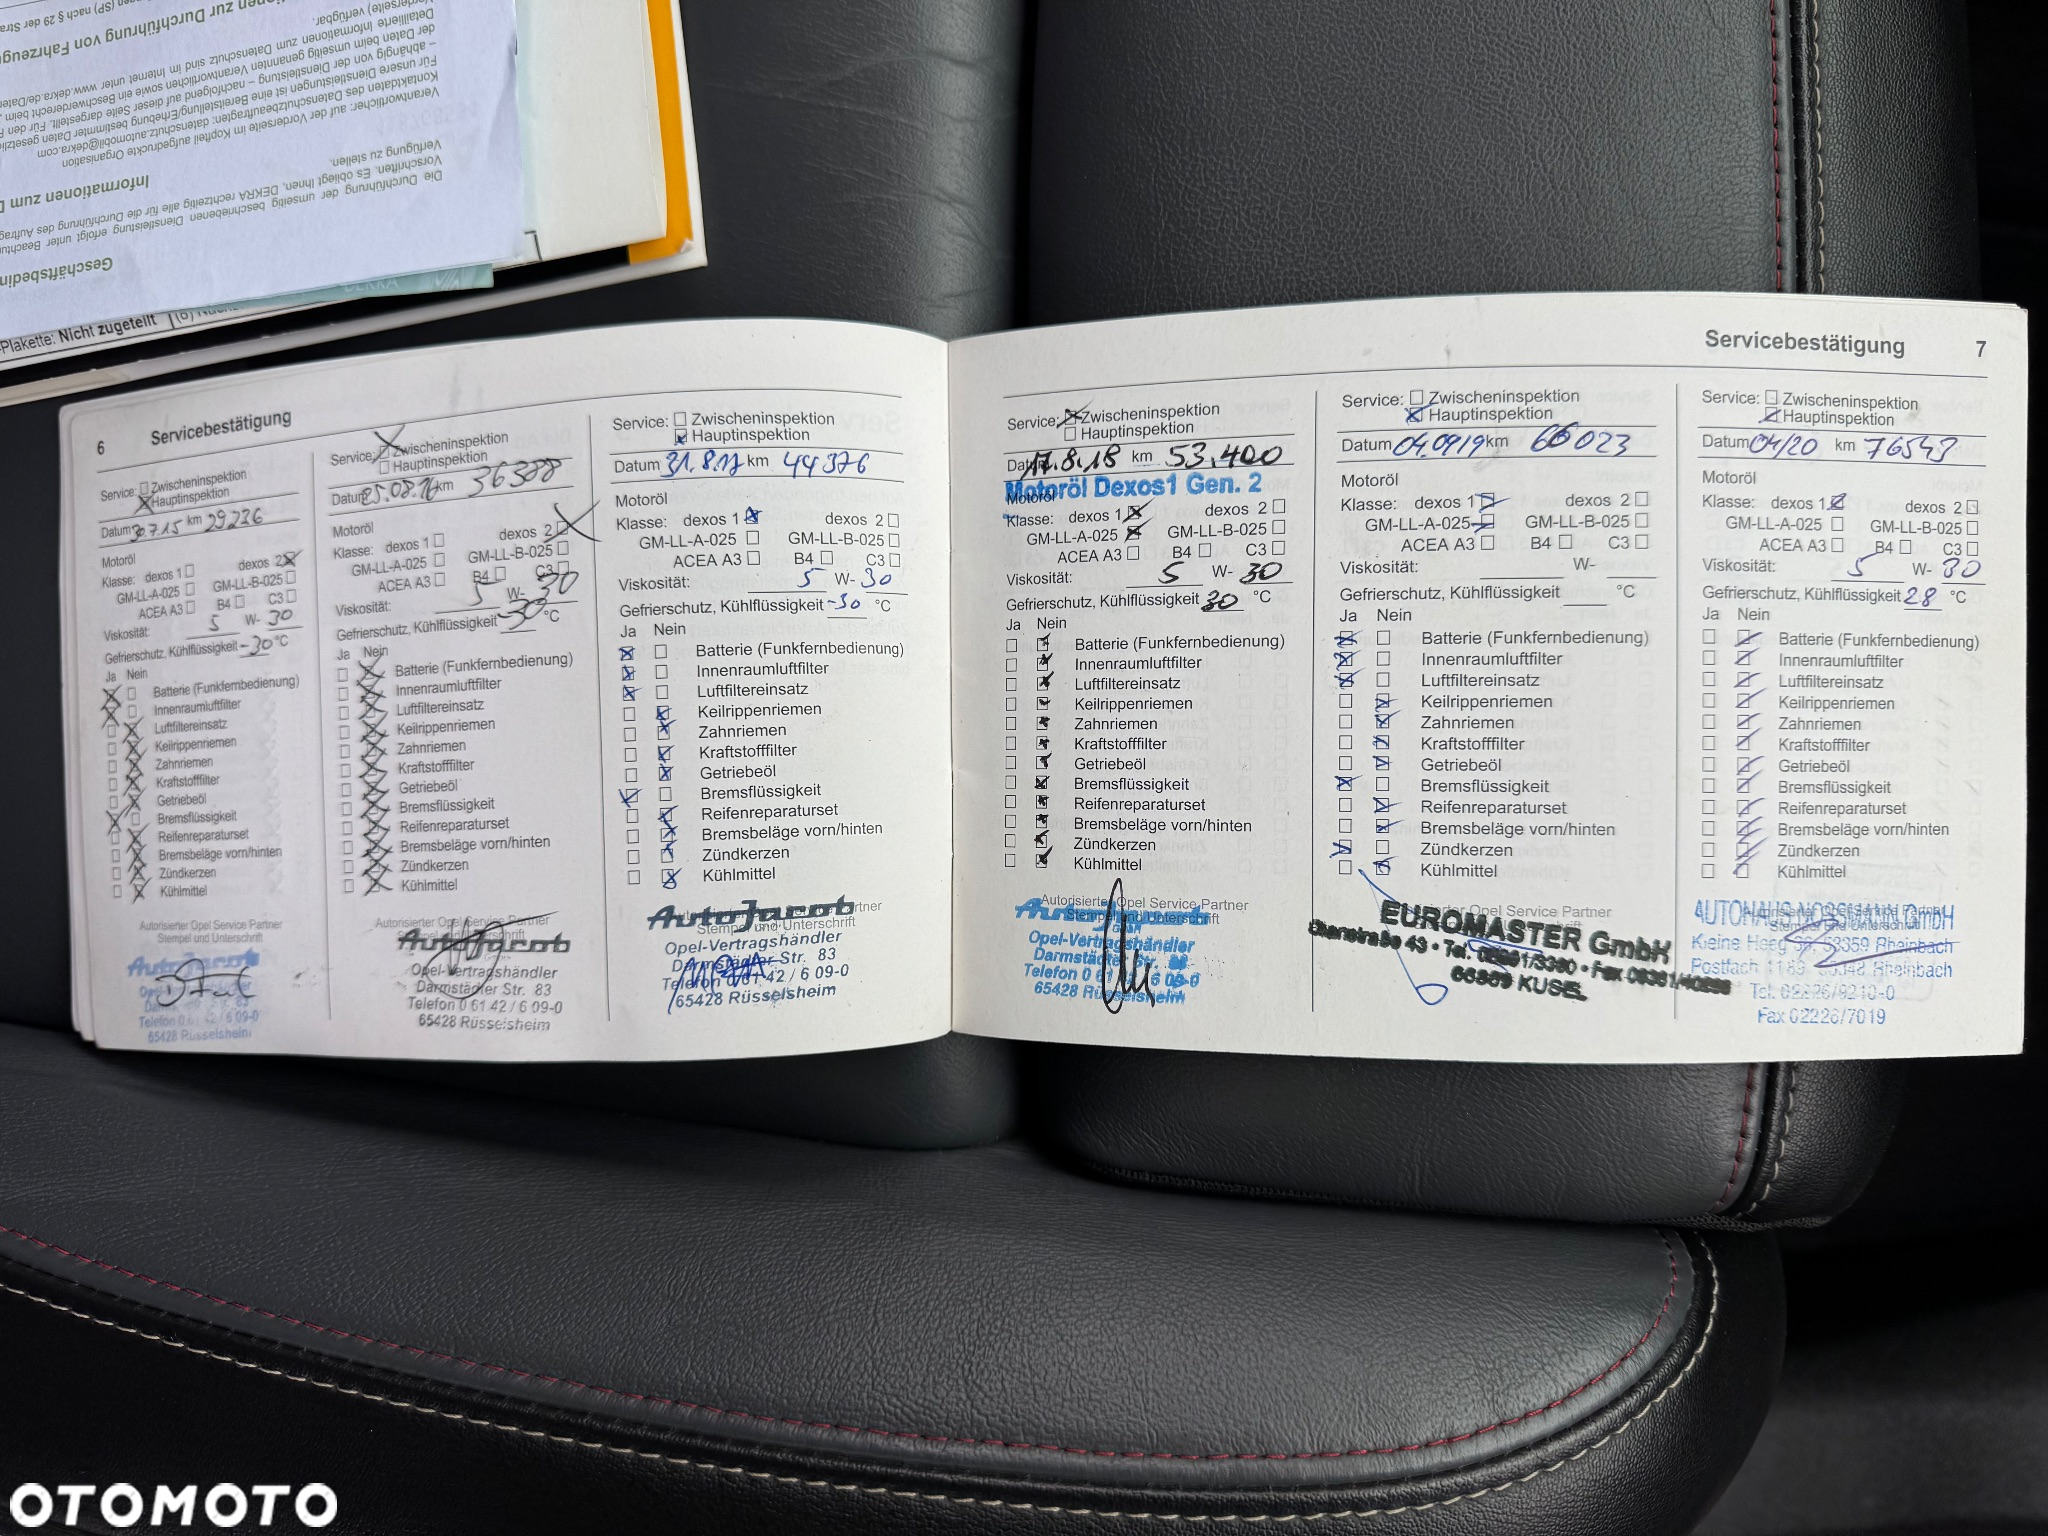 Geschäftsbedin
Die Durchführung der umseitig beschriebenen Dienstleistung erfolgt unter Beachtun
Vorschriften. Es obliegt Ihnen, DEKRA rechtzeitig alle für die Durchführung des Auftra
Verfügung zu stellen.
Informationen zum D
Verantwortlicher: auf der Vorderseite im Kopfteil aufgedruckte Organisation
Kontaktdaten des Datenschutzbeauftragten: datenschutz.automobil@dekra.com
Für unsere Dienstleistungen ist eine Bereitstellung/Erhebung bestimmter Daten gesetzlic
– abhängig von der Dienstleistung – nachfolgend auf dieser Seite dargestellt. Für den
der Daten beim umseitig genannten Verantwortlichen sowie ein Beschwerderecht beim
Detaillierte Informationen zum Datenschutz sind im Internet unter www.dekra.de/Daten
Vorderseite) verfügbar.
onen zur Durchführung von Fahrzeugu
(SP) nach § 29 der Stra
DEKRA
-Plakette: Nicht zugeteilt
6 Servicebestätigung
Service: Zwischeninspektion
Hauptinspektion
Datum 30.7.15 km 29236
Motoröl
Klasse: dexos 1 dexos 2
GM-LL-A-025 GM-LL-B-025
ACEA A3 B4 C3
Viskosität: 5 W- 30
Gefrierschutz, Kühlflüssigkeit -30 °C
Ja Nein
Batterie (Funkfernbedienung)
Innenraumluftfilter
Luftfiltereinsatz
Keilrippenriemen
Zahnriemen
Kraftstofffilter
Getriebeöl
Bremsflüssigkeit
Reifenreparaturset
Bremsbeläge vorn/hinten
Zündkerzen
Kühlmittel
Autorisierter Opel Service Partner
Stempel und Unterschrift
AutoJacob
Telefon 0 61 42 / 6 09-0
65428 Rüsselsheim
Service: Zwischeninspektion
Hauptinspektion
Datum 25.08.16 km 36388
Motoröl
Klasse: dexos 1 dexos 2
GM-LL-A-025 GM-LL-B-025
ACEA A3 B4 C3
Viskosität: 5 W- 30
Gefrierschutz, Kühlflüssigkeit -30 °C
Ja Nein
Batterie (Funkfernbedienung)
Innenraumluftfilter
Luftfiltereinsatz
Keilrippenriemen
Zahnriemen
Kraftstofffilter
Getriebeöl
Bremsflüssigkeit
Reifenreparaturset
Bremsbeläge vorn/hinten
Zündkerzen
Kühlmittel
Autorisierter Opel Service Partner
AutoJacob
Opel-Vertragshändler
Darmstädter Str. 83
Telefon 0 61 42 / 6 09-0
65428 Rüsselsheim
Service: Zwischeninspektion
Hauptinspektion
Datum 31.8.17 km 44376
Motoröl
Klasse: dexos 1 dexos 2
GM-LL-A-025 GM-LL-B-025
ACEA A3 B4 C3
Viskosität: 5 W- 30
Gefrierschutz, Kühlflüssigkeit -30 °C
Ja Nein
Batterie (Funkfernbedienung)
Innenraumluftfilter
Luftfiltereinsatz
Keilrippenriemen
Zahnriemen
Kraftstofffilter
Getriebeöl
Bremsflüssigkeit
Reifenreparaturset
Bremsbeläge vorn/hinten
Zündkerzen
Kühlmittel
Autorisierter Opel Service Partner
Stempel und Unterschrift
AutoJacob
Opel-Vertragshändler
Darmstädter Str. 83
Telefon 0 61 42 / 6 09-0
65428 Rüsselsheim
Servicebestätigung 7
Service: Zwischeninspektion
Hauptinspektion
Datum 17.8.18 km 53.400
Motoröl Dexos1 Gen. 2
Motoröl
Klasse: dexos 1 dexos 2
GM-LL-A-025 GM-LL-B-025
ACEA A3 B4 C3
Viskosität: 5 W- 30
Gefrierschutz, Kühlflüssigkeit 30 °C
Ja Nein
Batterie (Funkfernbedienung)
Innenraumluftfilter
Luftfiltereinsatz
Keilrippenriemen
Zahnriemen
Kraftstofffilter
Getriebeöl
Bremsflüssigkeit
Reifenreparaturset
Bremsbeläge vorn/hinten
Zündkerzen
Kühlmittel
Autorisierter Opel Service Partner
Stempel und Unterschrift
Opel-Vertragshändler
Darmstädter Str.
Telefon 0 61 6 09-0
65428 Rüsselsheim
Service: Zwischeninspektion
Hauptinspektion
Datum 04.09.19 km 66023
Motoröl
Klasse: dexos 1 dexos 2
GM-LL-A-025 GM-LL-B-025
ACEA A3 B4 C3
Viskosität: W-
Gefrierschutz, Kühlflüssigkeit °C
Ja Nein
Batterie (Funkfernbedienung)
Innenraumluftfilter
Luftfiltereinsatz
Keilrippenriemen
Zahnriemen
Kraftstofffilter
Getriebeöl
Bremsflüssigkeit
Reifenreparaturset
Bremsbeläge vorn/hinten
Zündkerzen
Kühlmittel
Autorisierter Opel Service Partner
EUROMASTER GmbH
66869 KUSEL
Service: Zwischeninspektion
Hauptinspektion
Datum 04/20 km 76543
Motoröl
Klasse: dexos 1 dexos 2
GM-LL-A-025 GM-LL-B-025
ACEA A3 B4 C3
Viskosität: 5 W- 30
Gefrierschutz, Kühlflüssigkeit 28 °C
Ja Nein
Batterie (Funkfernbedienung)
Innenraumluftfilter
Luftfiltereinsatz
Keilrippenriemen
Zahnriemen
Kraftstofffilter
Getriebeöl
Bremsflüssigkeit
Reifenreparaturset
Bremsbeläge vorn/hinten
Zündkerzen
Kühlmittel
Kleine Heeg 53359 Rheinbach
Postfach 1189 Rheinbach
Tel. 02226/9210-0
Fax 02226/7019
OTOMOTO